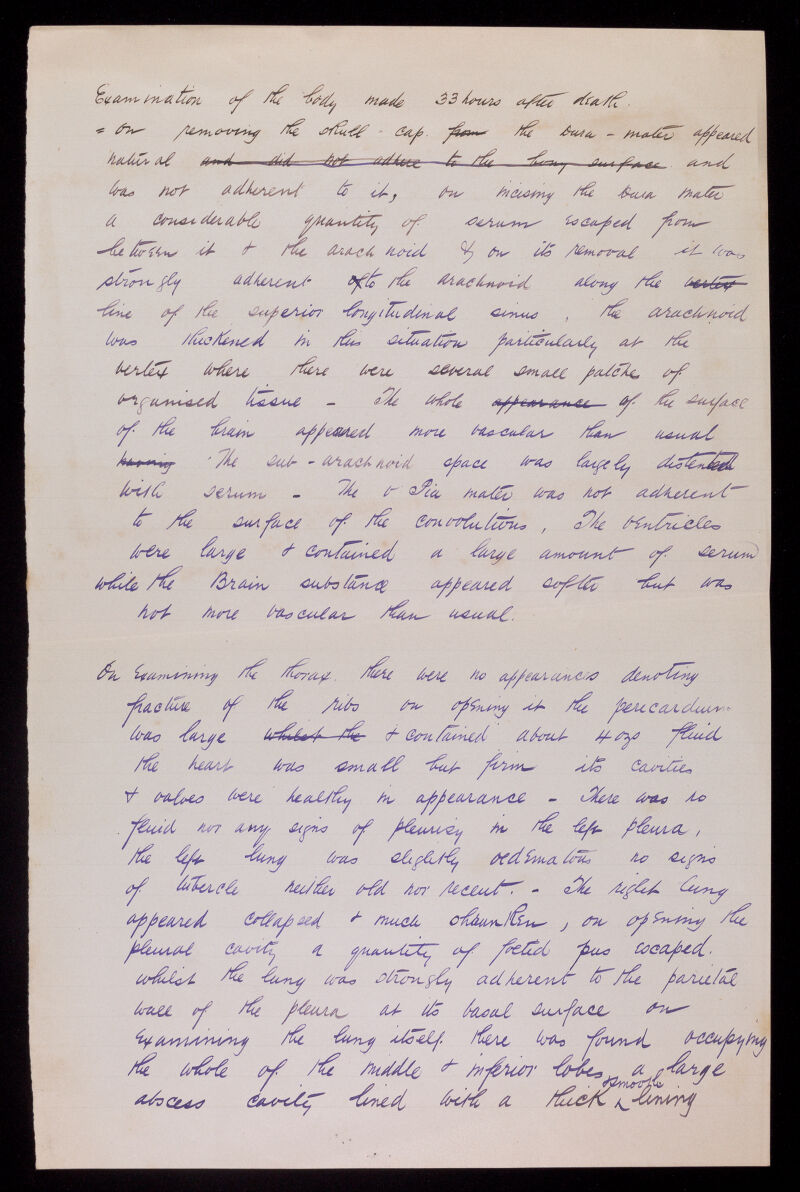 Examination of the body made 33 hours after death.
= on removing the skull-cap. from the Dura-mater appeared
natural and did not adhere to the bony surface and
was not adherent to it, on incising the Dura mater
a considerable quantity of serum escaped from
between it & the arachnoid & on its removal it was
strongly adherent to the arachnoid along the vertex
line of the superior longitudinal sinus. the arachnoid
was thickened in this situation particularly at the
vertex where there were several small patches of
organised tissue - The whole appearance of the surface
of the brain appeared more vascular than usual
having The sub-arachnoid space was largely distended
with serum - The Pia mater was not adherent
to the surface of the convolutions, The ventricles
were large & contained a large amount of serum
while the Brain substance appeared softer but was
not more vascular than usual.
On Examining the thorax there were no appearances denoting
fracture of the ribs on opening it the pericardium
was large whilst the & contained about 4 ozs fluid
the heart was small but firm its cavities
& valves were healthy in appearance - There was no
fluid nor any signs of pleurisy in the left pleura,
the left lung was slightly oedematous no signs
of tubercle neither old nor recent. - The right lung
appeared collapsed & much shrunken, on opening the
pleural cavity a quantity of foetid pus escaped.
whilst the lung was strongly adherent to the parietal
wall of the pleura at its basal surface on
Examining the lung itself there was found occupying
the whole of the middle & inferior lobes a large
abscess cavity lined with a thick & smooth lining